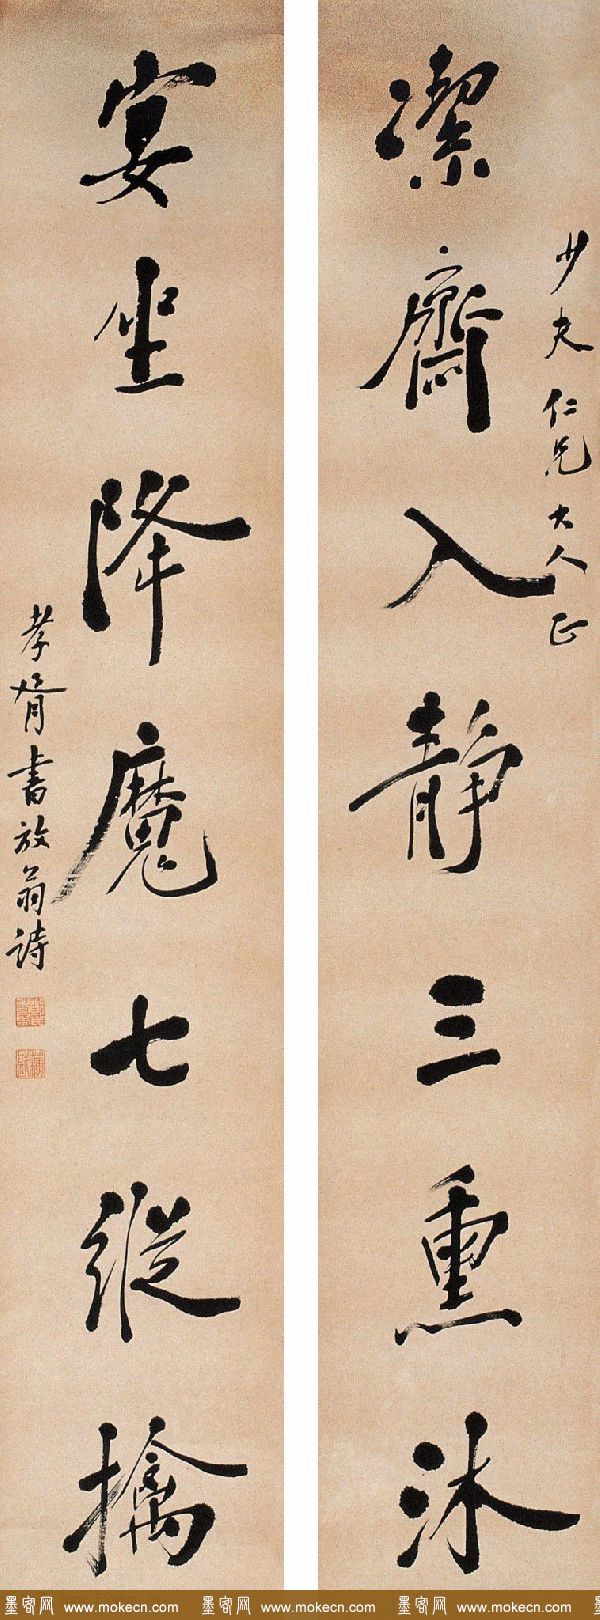 潔齋入靜三熏沐
少夫仁兄大人正
宴坐降魔七縱擒
孝胥書放翁詩
墨客网 www.mokecn.com 墨客网 www.mokecn.com 墨客网 www.mokecn.com 墨客网 www.mokecn.com